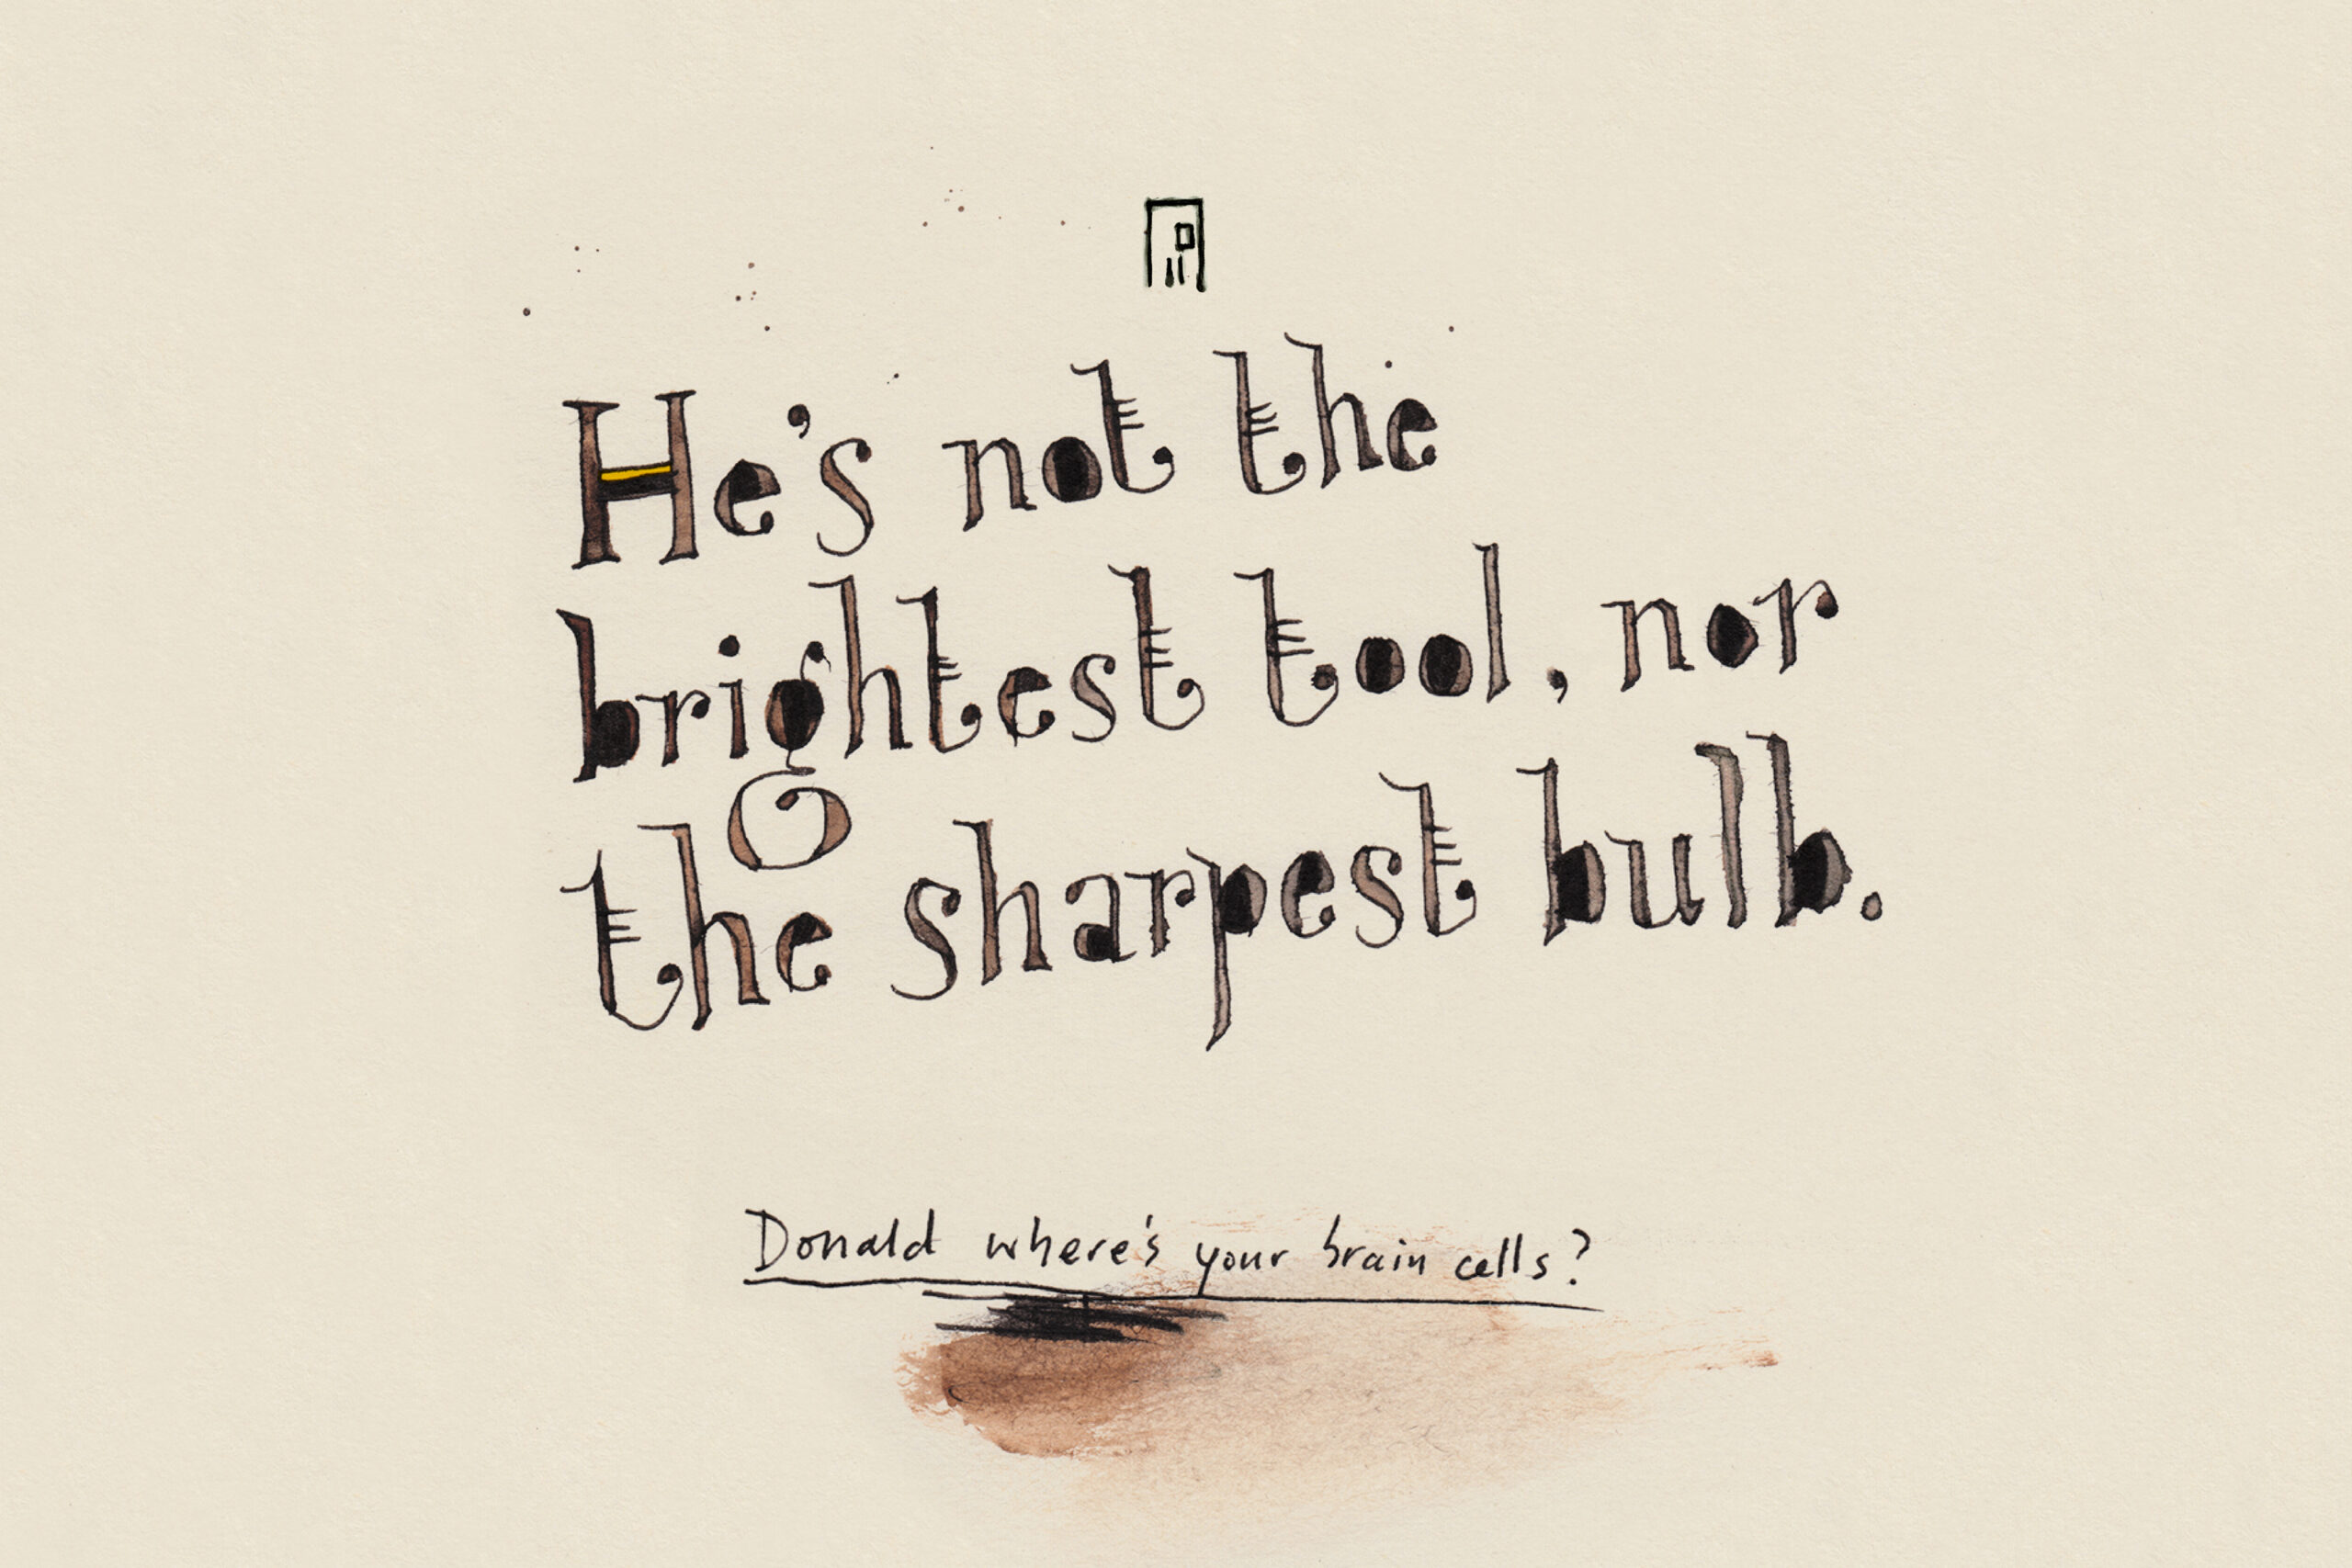 He's not the
brightest tool, nor
the sharpest bulb.
Donald where's your brain cells?